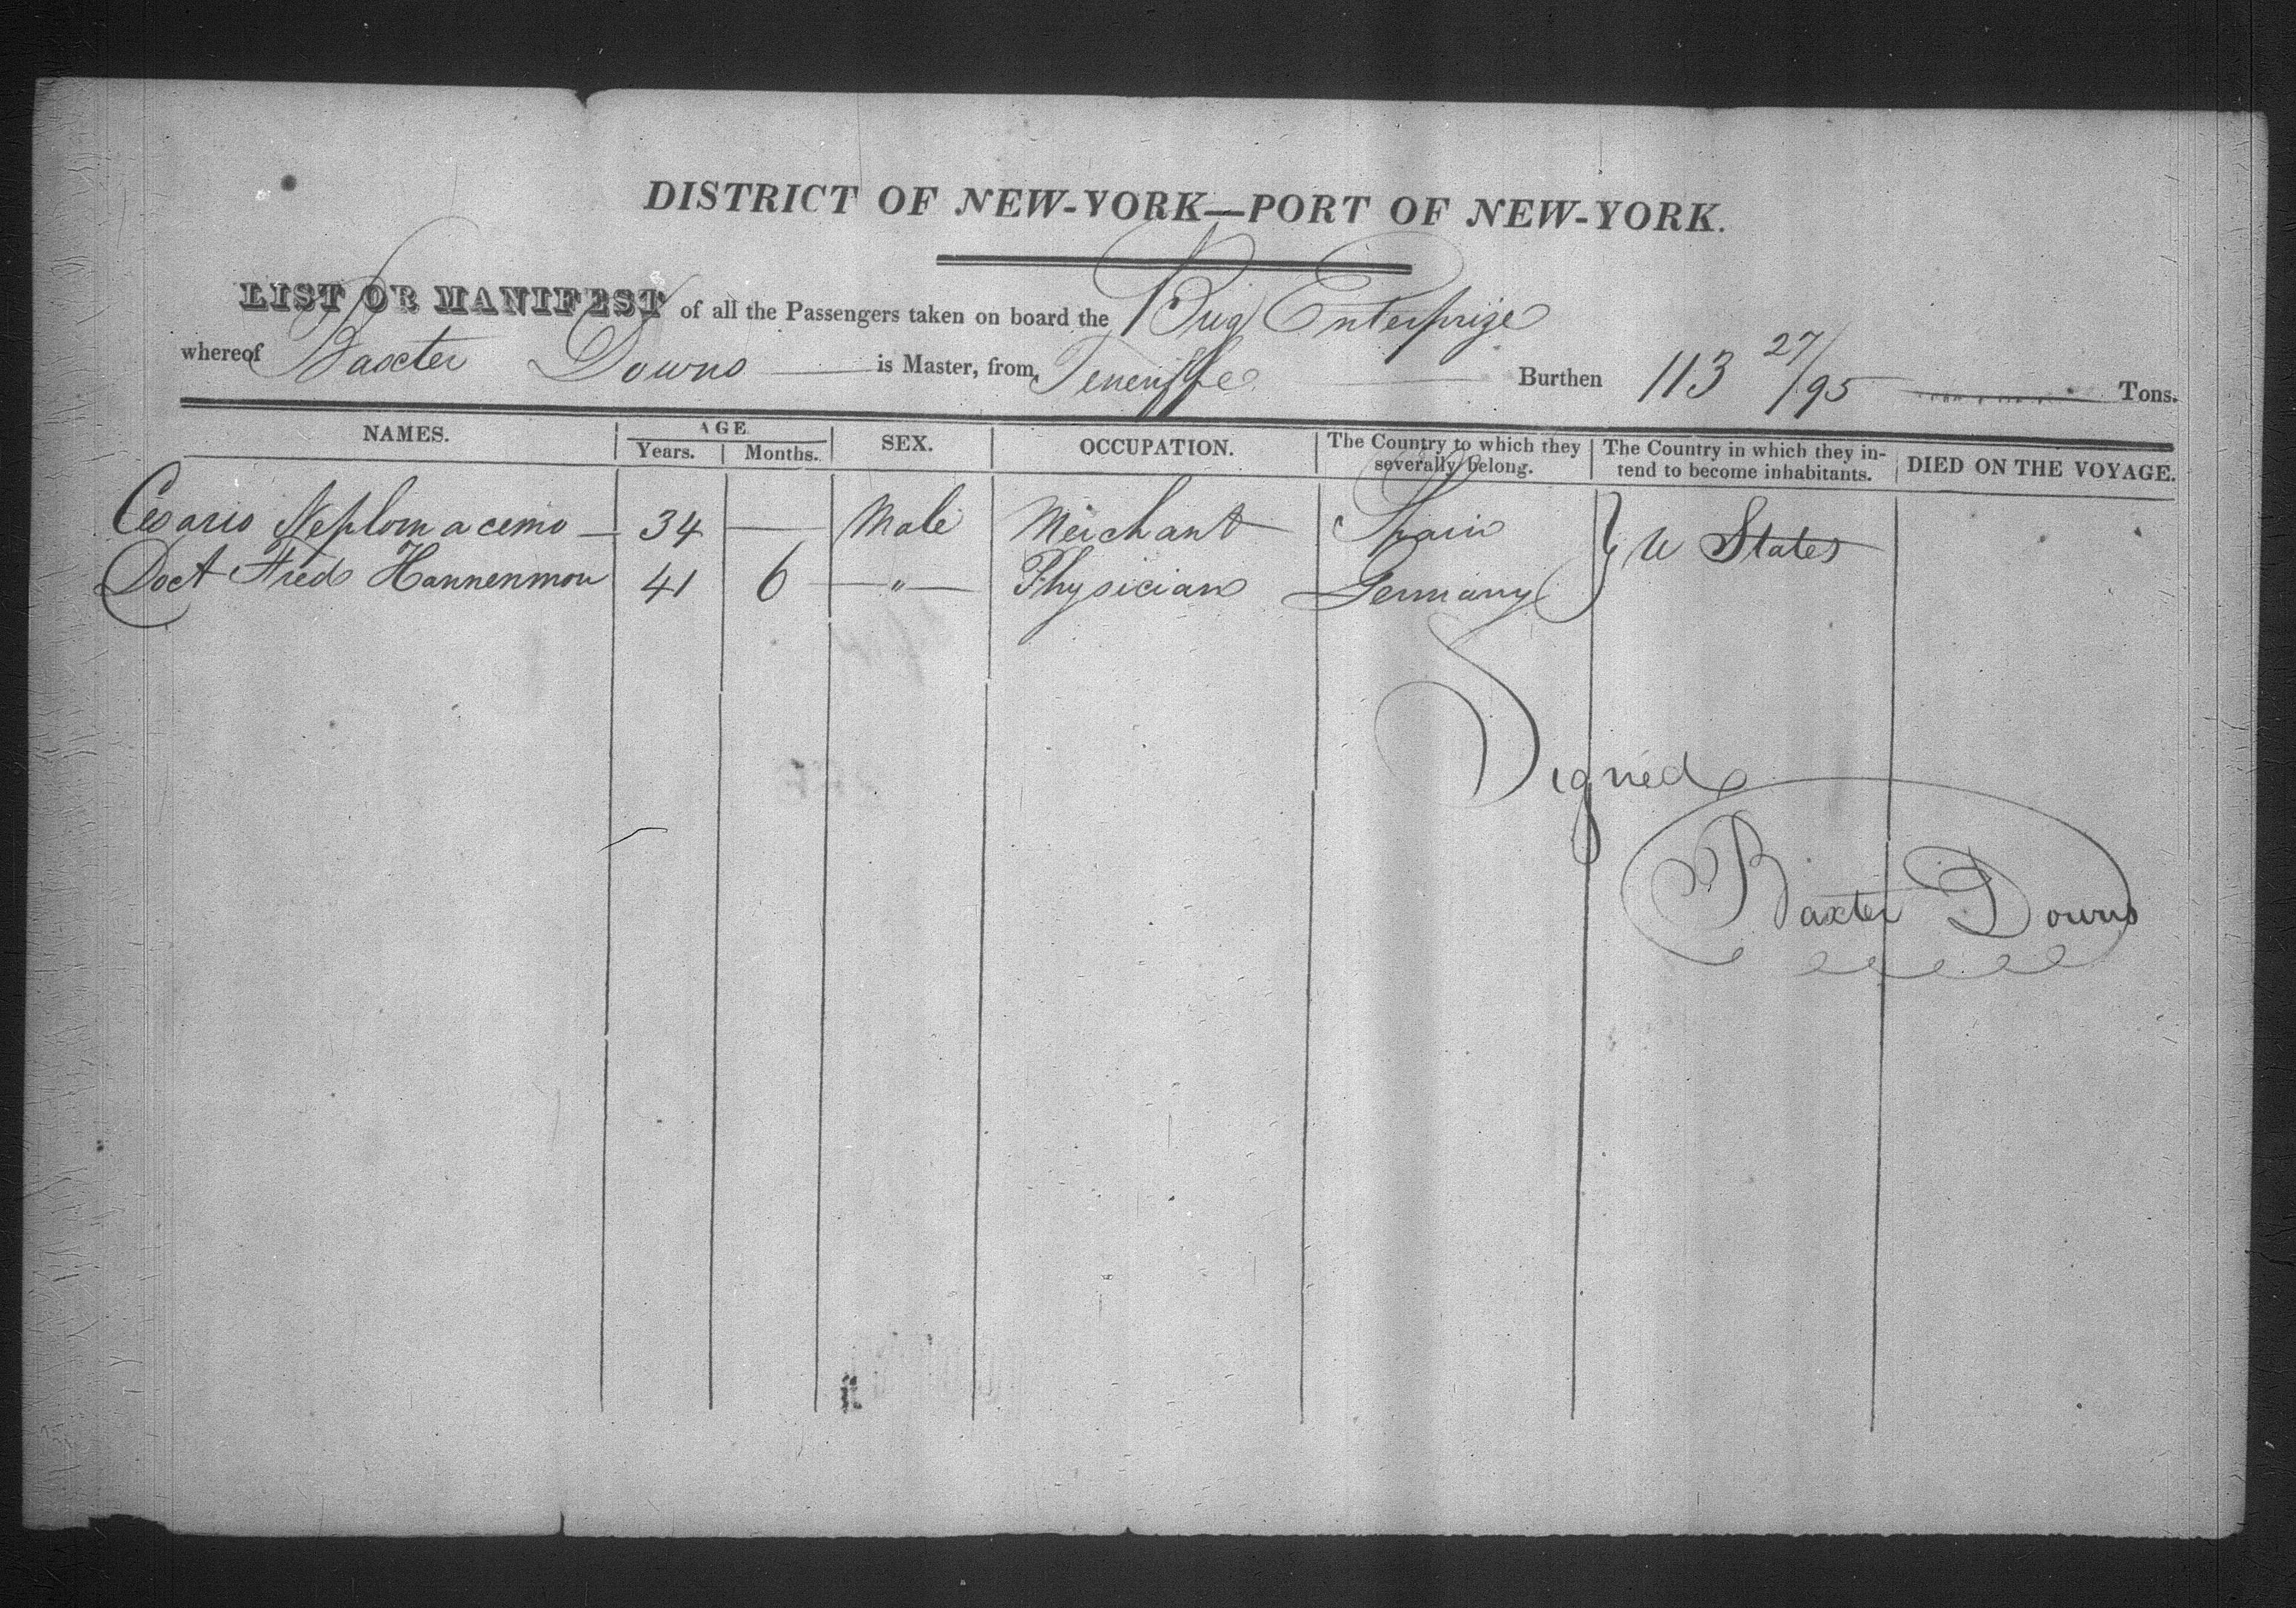 DISTRICT OF NEW-YORK—PORT OF NEW-YORK.
LIST OR MANIFEST of all the Passengers taken on board the Brig Enterprize
whereof Baxter Downs is Master, from Teneriffe Burthen 113 27/95 Tons.
NAMES. AGE Years. Months. SEX. OCCUPATION. The Country to which they severally belong. The Country in which they intend to become inhabitants. DIED ON THE VOYAGE.
Cesario Neplomacemo — 34 — Male Merchant Spain } U States
Doct Fred Hannenmon 41 6 — " — Physician Germany
Signed
Baxter Downs